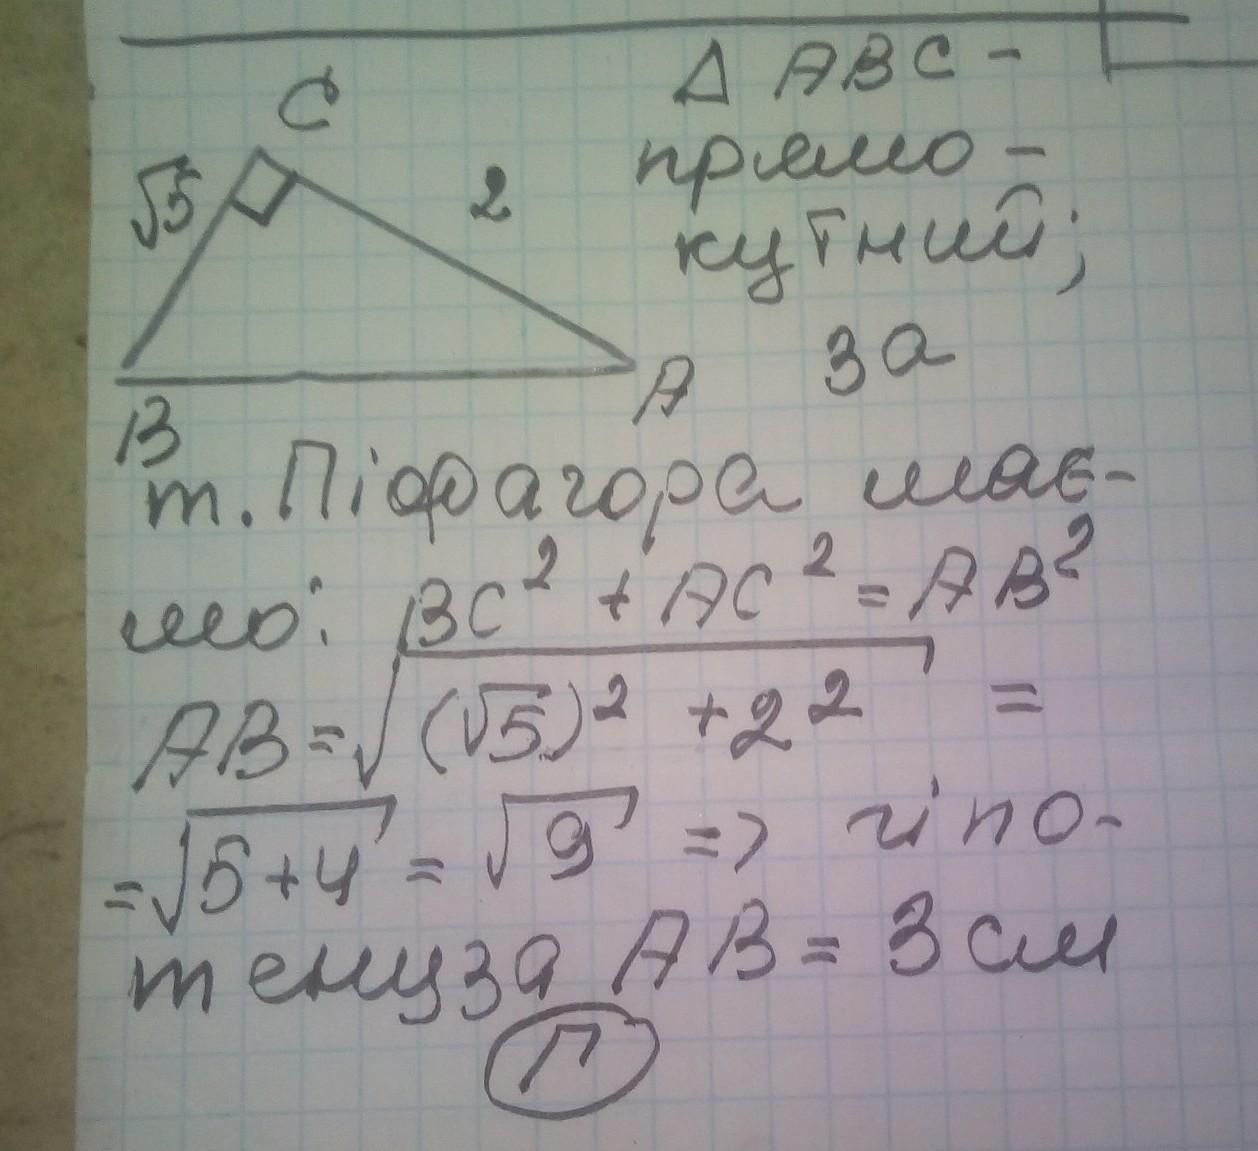 C
√5
2
B
A
Δ ABC -
прямо -
кутний;
за
т. Піфагора має-
мо: BC² + AC² = AB²
AB = √((√5)² + 2²) =
= √(5+4) = √9 => гіпо-
тенуза AB = 3 см
Г